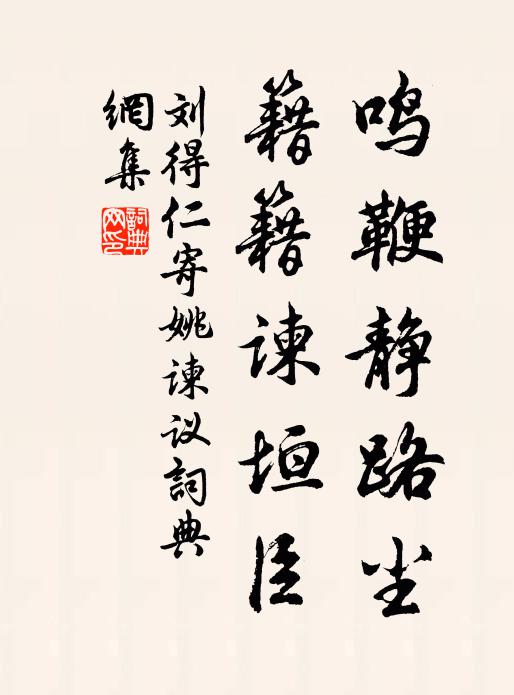 鸣鞭静路尘
籍籍谏垣臣
刘得仁寄姚谏议詞典
網集
詞典
网印